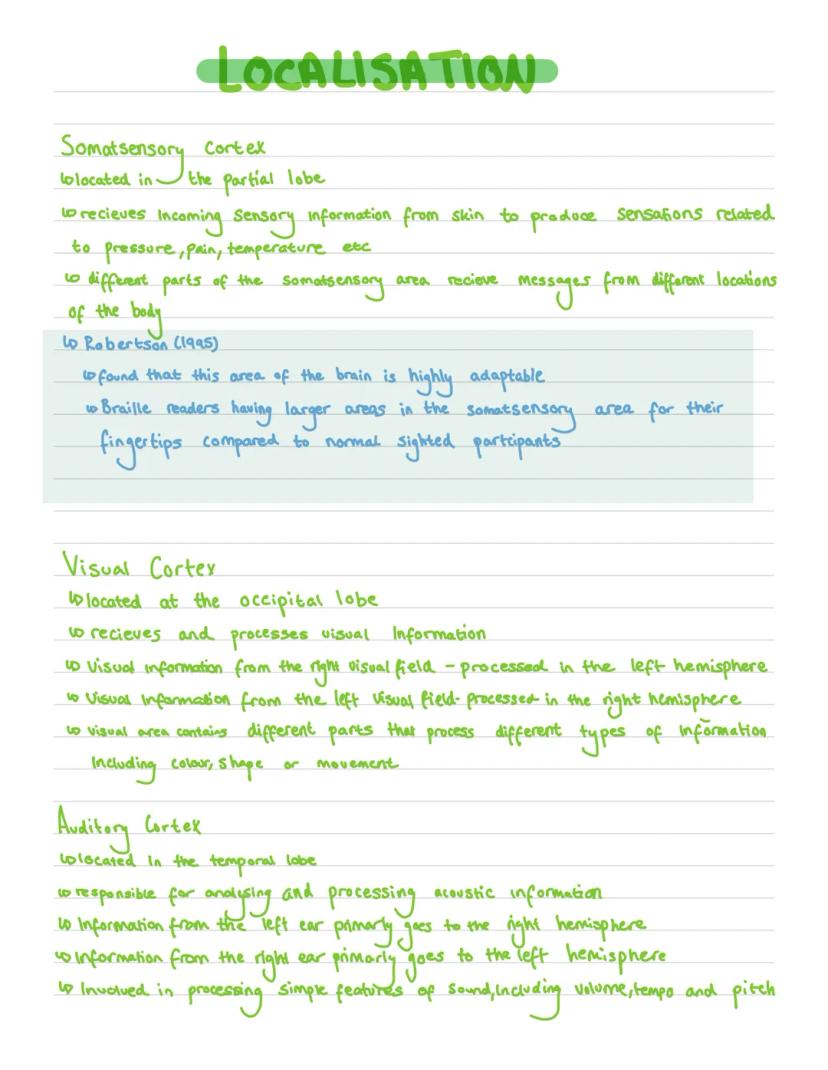 LOCALISATION
Somatsensory Cortex
↳ located in the partial lobe
↳ recieves incoming sensory information from skin to produce sensations related
to pressure, pain, temperature etc
↳ different parts of the somatsensory area recieve messages from different locations
of the body
↳ Robertson (1995)
↳ found that this area of the brain is highly adaptable
↳ Braille readers having larger areas in the somatsensory area for their
fingertips compared to normal sighted partcipants
Visual Cortex
↳ located at the occipital lobe
↳ recieves and processes visual information
↳ Visual information from the right visual field - processed in the left hemisphere
↳ Visual information from the left visual field - processed in the right hemisphere
↳ visual area contains different parts that process different types of information
Including colour, shape or movement
Auditory Cortex
↳ located in the temporal lobe
↳ responsible for analysing and processing acoustic information
↳ Information from the left ear primarly goes to the right hemisphere
↳ Information from the right ear primarly goes to the left hemisphere
↳ Involved in processing simple features of sound, including volume, tempo and pitch